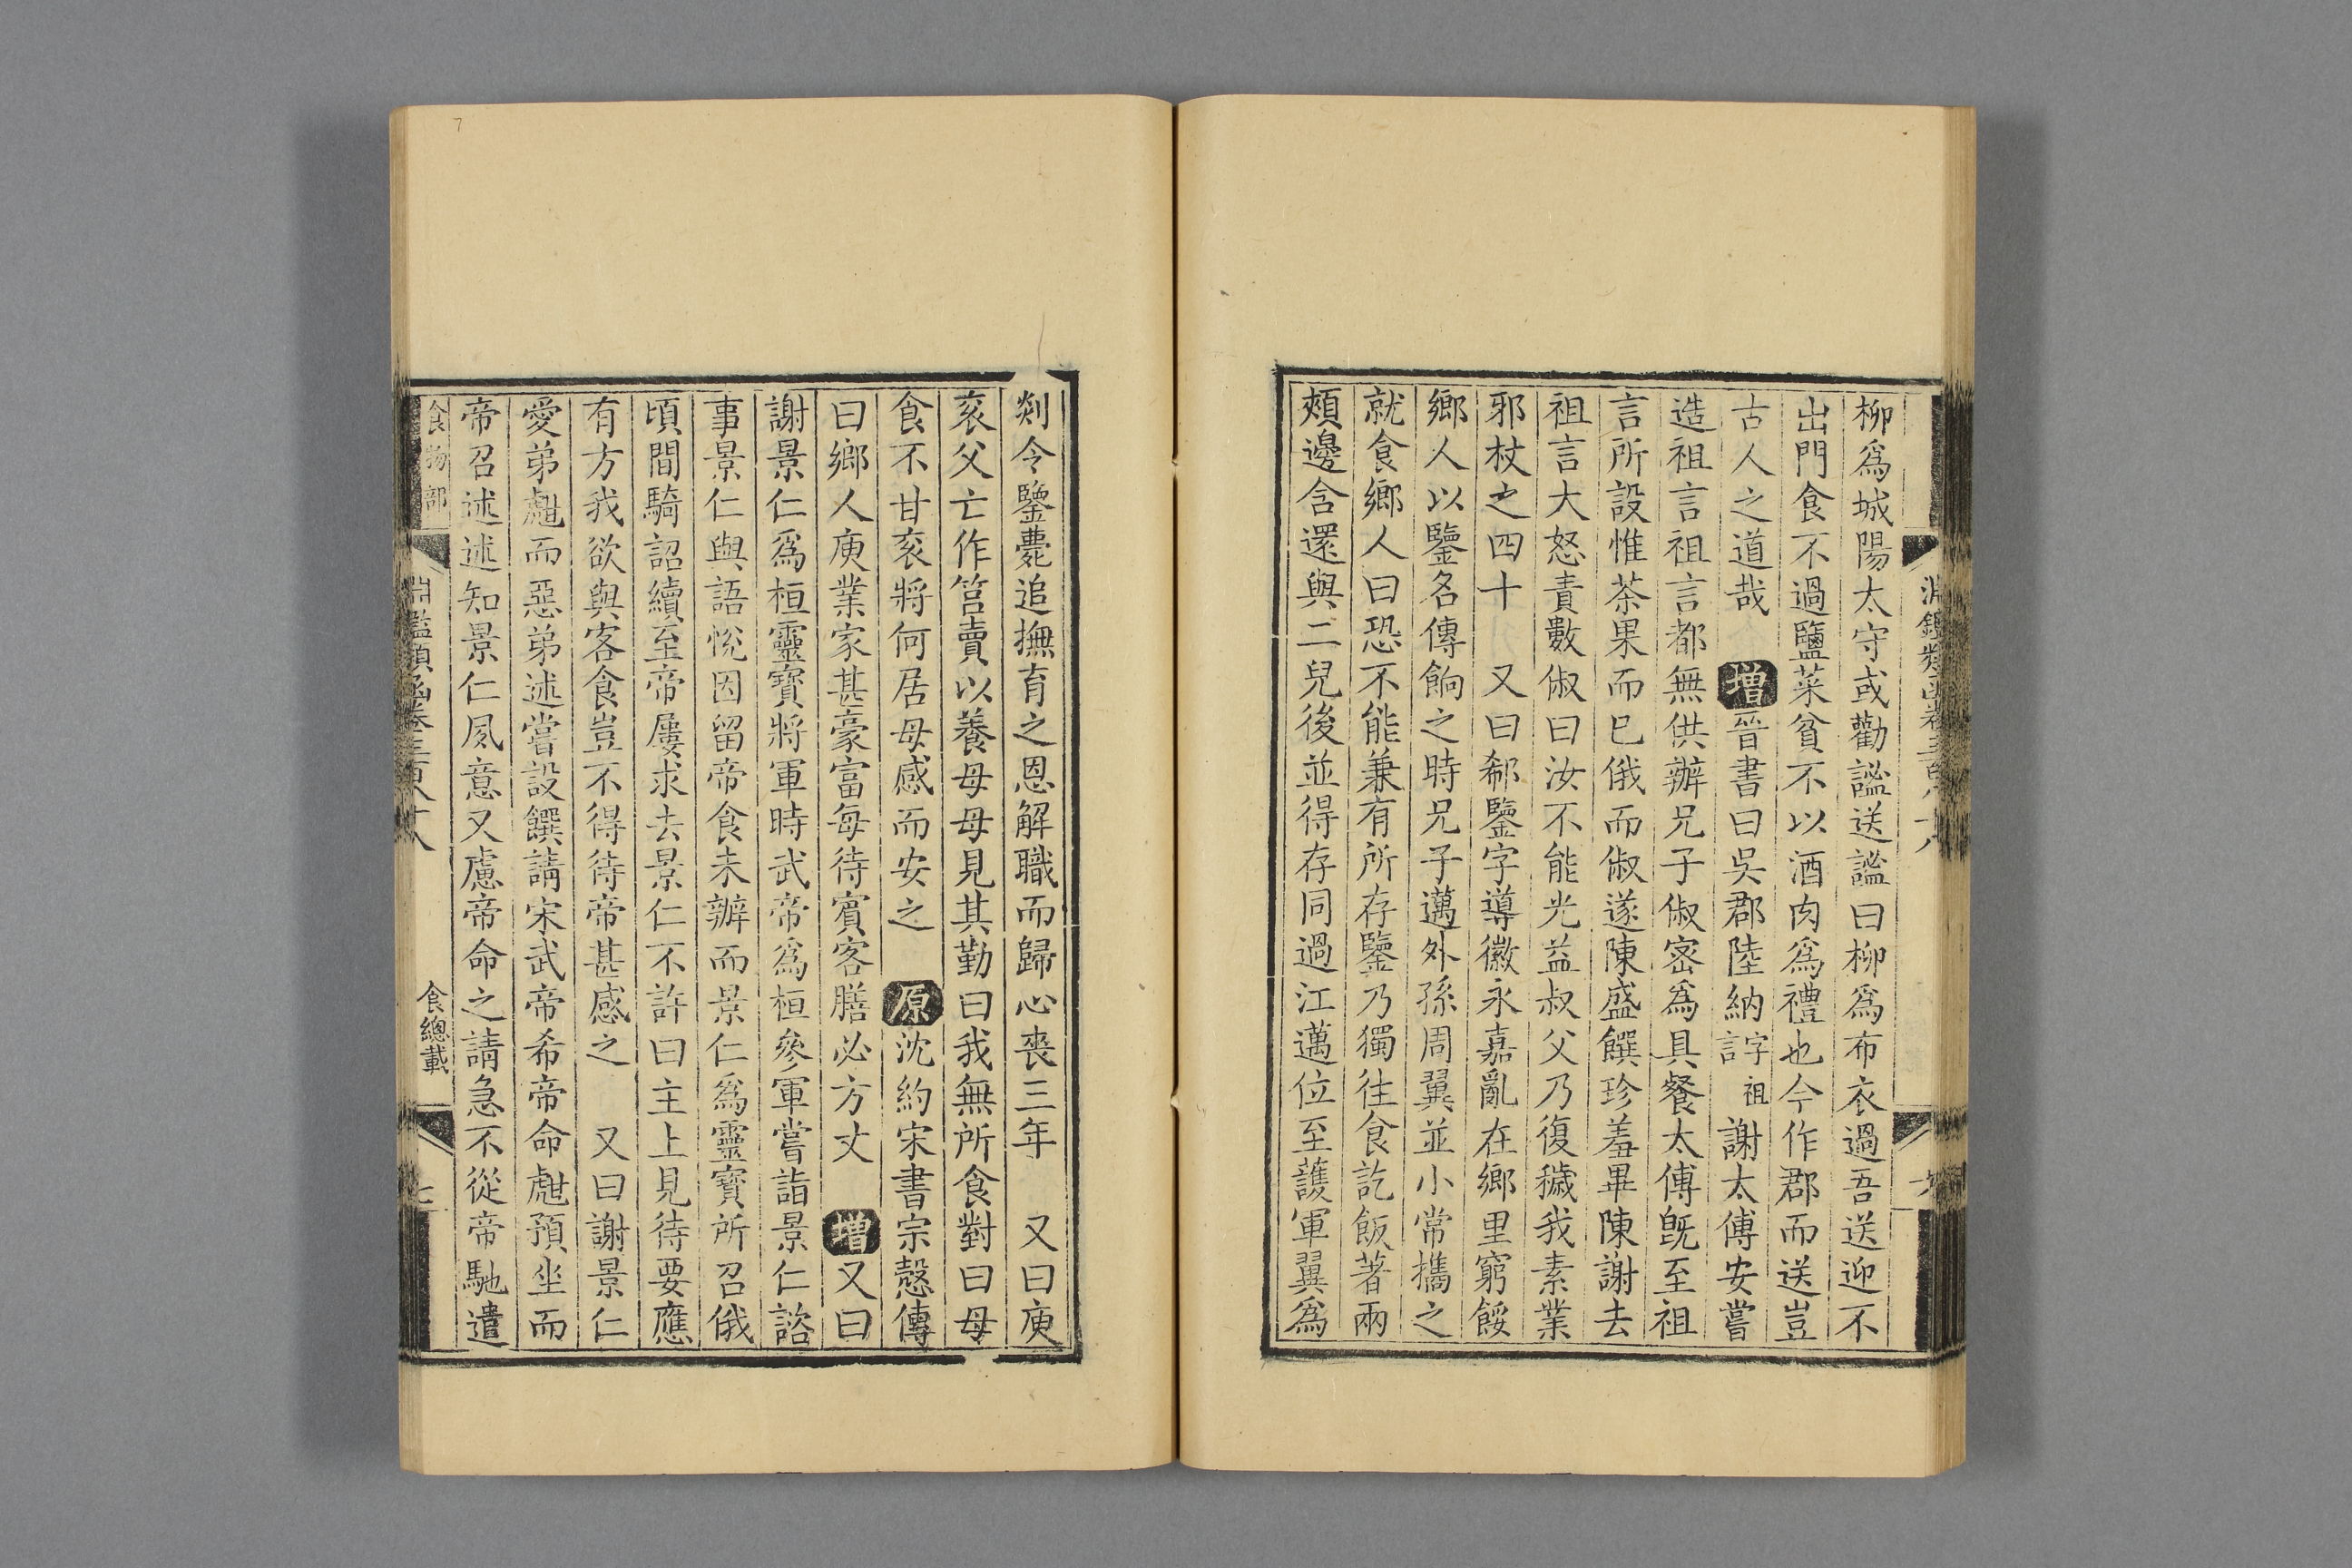 柳爲城陽太守或勸謐送謐曰柳爲布衣過吾送迎不
出門食不過鹽菜貧不以酒肉爲禮也今作郡而送豈
古人之道哉 增晉書曰吳郡陸納字祖言謝太傅安嘗
造祖言祖言都無供辦兄子俶密爲具餐太傅旣至祖
言所設惟茶果而已俄而俶遂陳盛饌珍羞畢陳謝去
祖言大怒責數俶曰汝不能光益叔父乃復穢我素業
邪杖之四十 又曰郗鑒字導徽永嘉亂在鄉里窮餒
鄉人以鑒名傳餉之時兄子邁外孫周翼並小常攜之
就食鄉人曰恐不能兼有所存鑒乃獨往食訖飯著兩
頰邊含還與二兒後並得存同過江邁位至護軍翼爲
剡令鑒薨追撫育之恩解職而歸心喪三年 又曰庾
衮父亡作筥賣以養母母見其勤曰我無所食對曰母
食不甘衮將何居母感而安之 原沈約宋書宗慤傳
曰鄉人庾業家甚豪富每待賓客膳必方丈 增又曰
謝景仁爲桓靈寶將軍時武帝爲桓參軍嘗詣景仁諮
事景仁與語悅因留帝食未辦而景仁爲靈寶所召俄
頃間騎詔續至帝屢求去景仁不許曰主上見待要應
有方我欲與客食豈不得待帝甚感之 又曰謝景仁
愛弟甝而惡弟述嘗設饌請宋武帝希帝命甝預坐而
帝召述述知景仁夙意又慮帝命之請急不從帝馳遣
食物部 淵鑑類函卷三百八十八 食總載 七